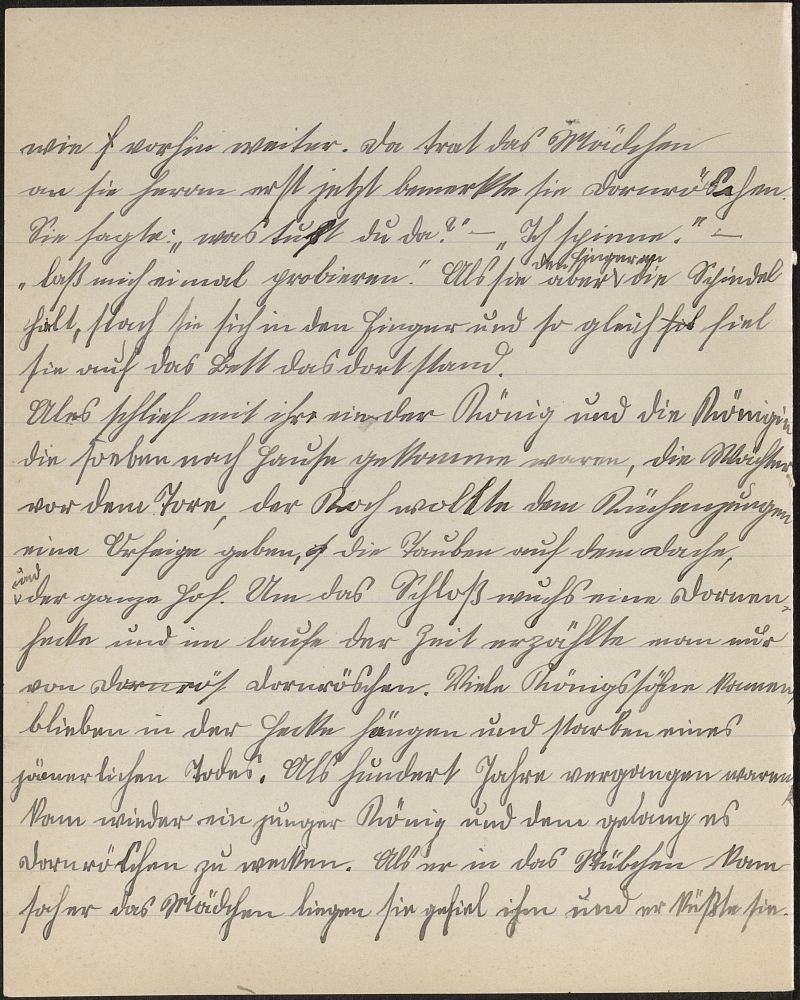 wie f vorhin weiter. Da trat das Mädchen
an sie heran erst jetzt bemerkte sie Dornröschen.
Sie sagte: „was tust du da?" – „Ich spinne." –
„laß mich eimal probieren." Als sie aber den Finger an die Schindel
hält, stach sie sich in den Finger und so gleich fil fiel
sie auf das Bett das dort stand.
Alles schlief mit ihr ein der König und die Königin
die soeben nach Hause gekomme waren, die Wächter
vor dem Tore, der Koch wollte dem Küchenjungen
eine Orfeige geben, die Tauben auf dem Dache,
und der ganze Hof. Um das Schloß wuchs eine Dornen-
hecke und im laufe der Zeit erzählte man nur
von Dornrös Dornröschen. Viele Königssöhne kamen,
blieben in der Hecke hängen und starben eines
jämerlichen Todes. Als hundert Jahre vergangen waren
kam wieder ein junger König und dem gelang es
Dornröschen zu wecken. Als er in das Stübchen kam
sah er das Mädchen liegen sie gefiel ihm und er küßte sie.